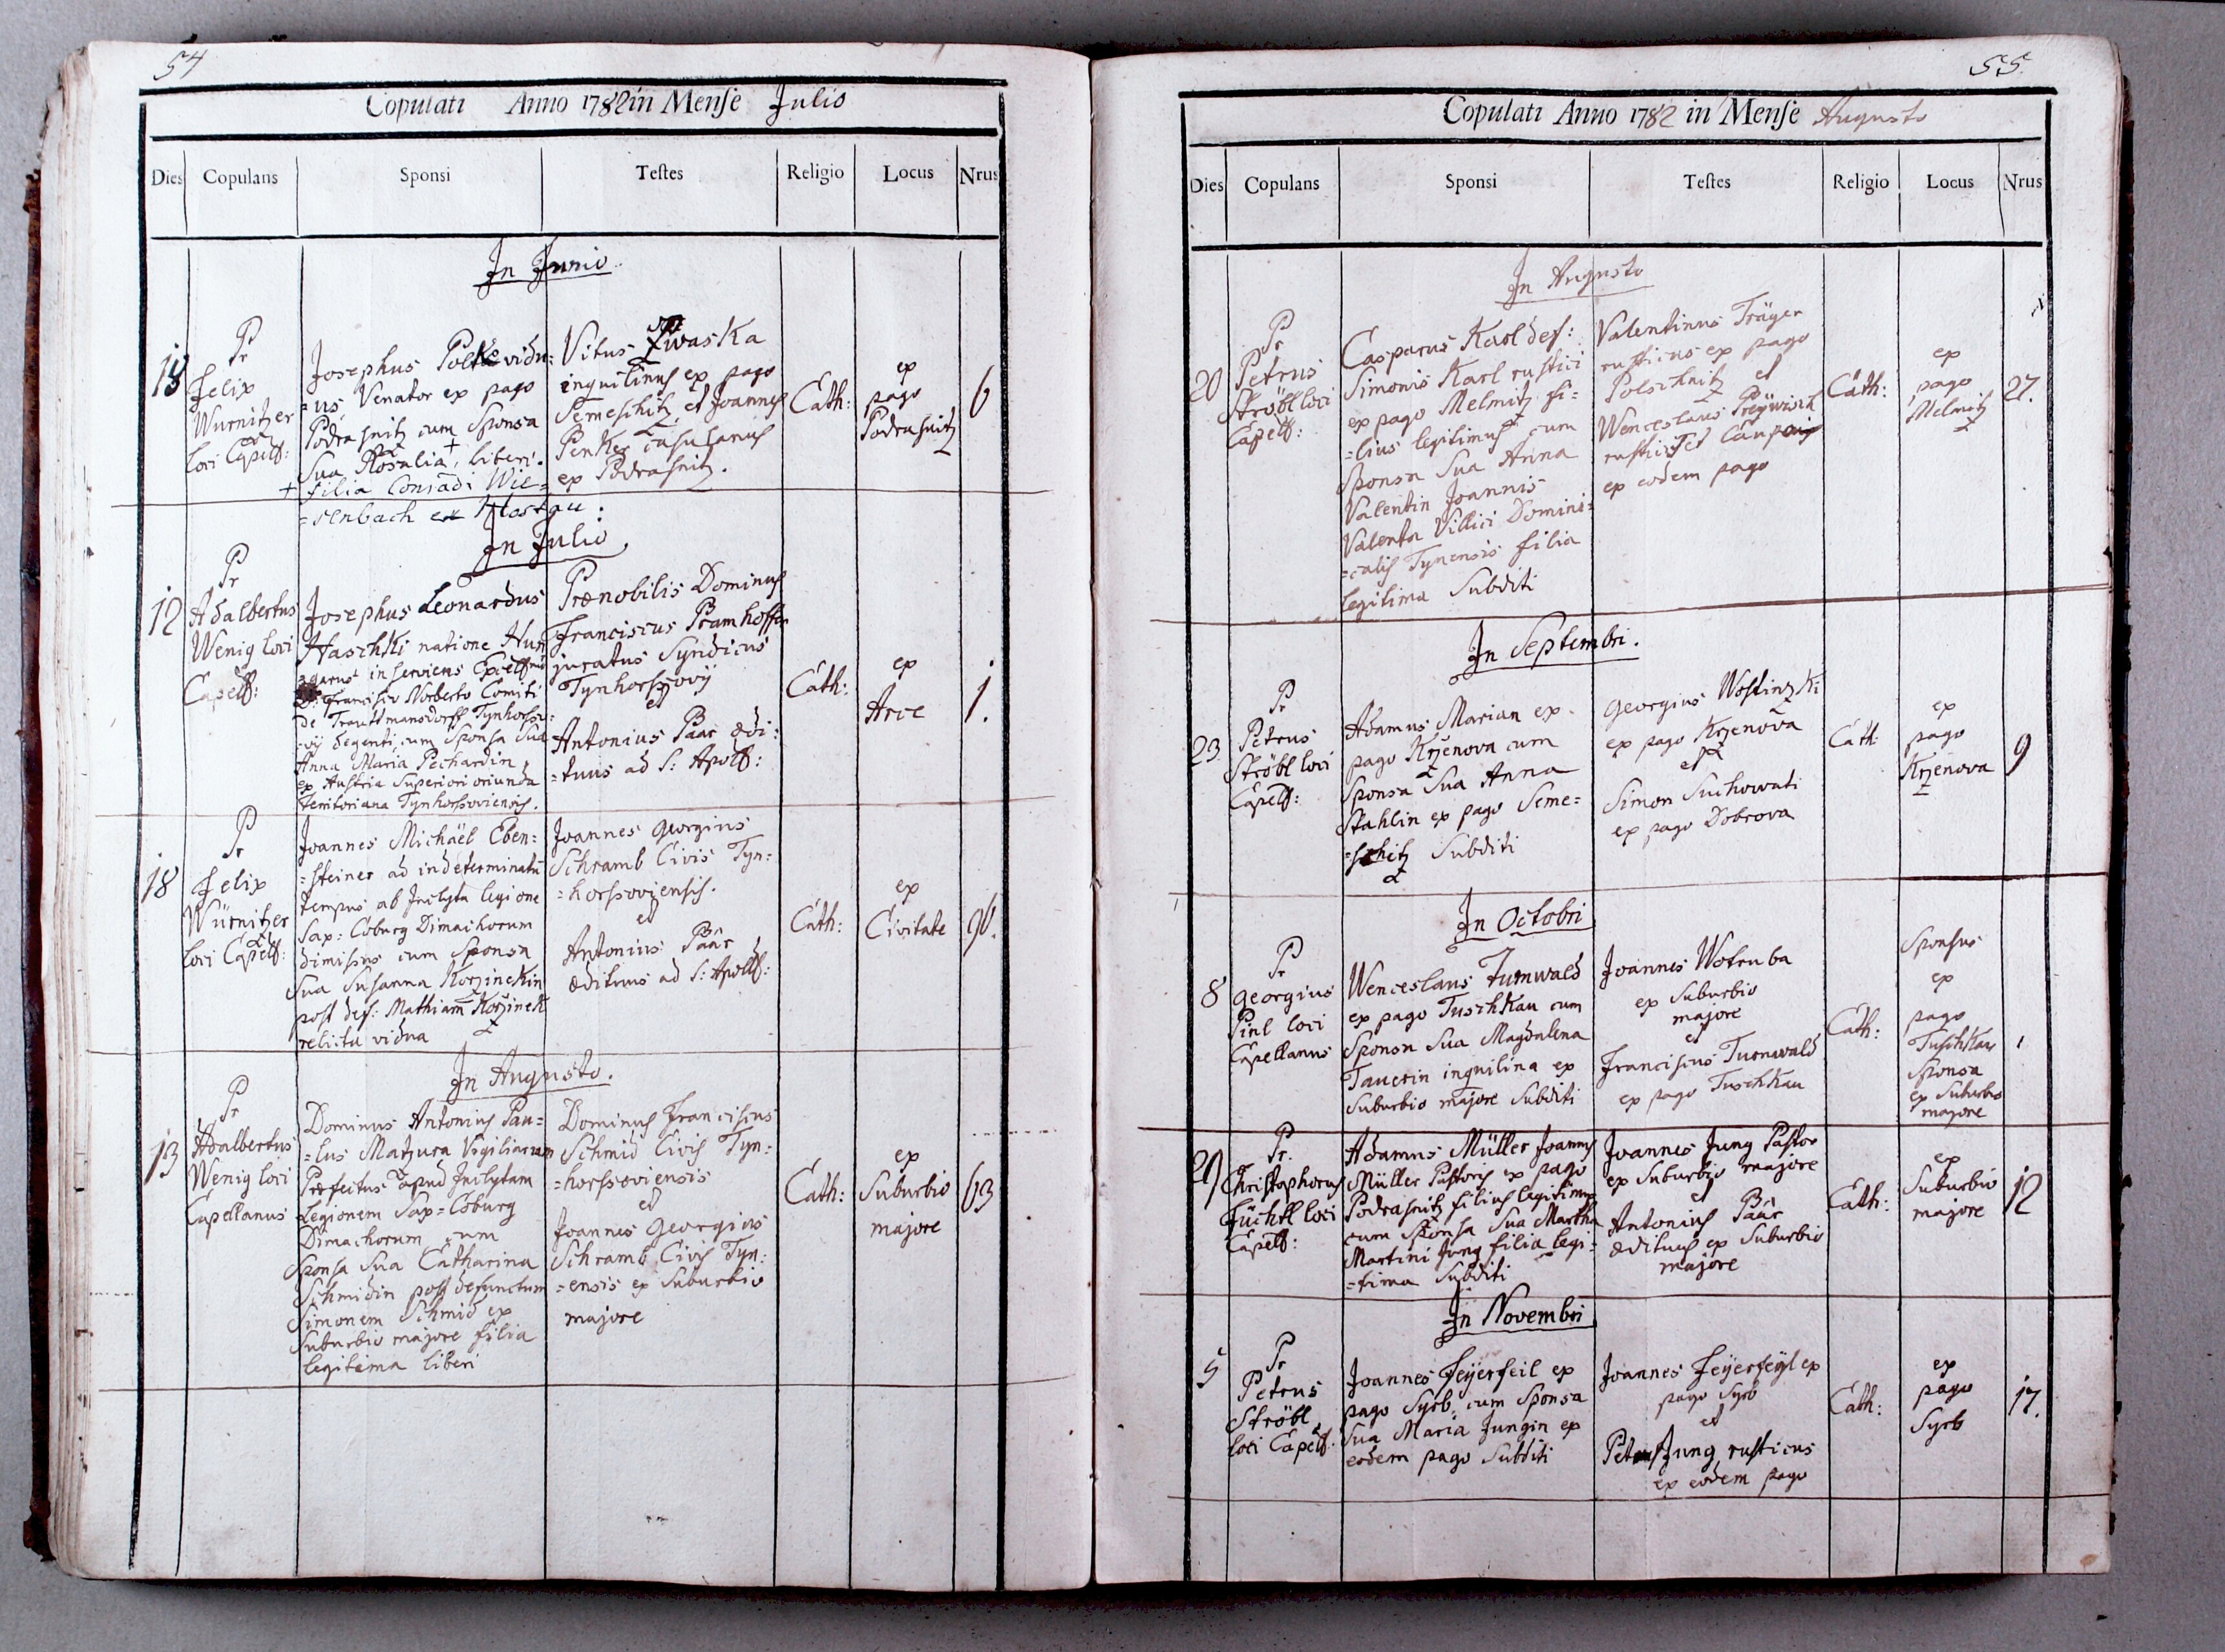 54
Copulati Anno 1782 in Mense Julio
Dies Copulans Sponsi Testes Religio Locus Nrus
In Junio
18
Pr
Felix
Wurnitzer
loci Capell:
Josephus Polke vidu=
=us, Venator ex pago
Podrasnitz cum Sponsa
Sua Rosalia, liberi.
+ filia Conradi Wie=
=senbach ex Hostau:
Vitus
inquilinus ex pago
Semeschitz et Joannes
Penker casulanus
ex Podrasnitz.
Cath:
ex
pago
Podrasnitz
6
In Julio.
12
Pr
Adalbertus
Wenig loci
Capell:
Josephus Leonardus
Haschki natione Hun
=garus inserviens
Francisco Norberto Comiti
de Trauttmansdorff Tynhorsso=
=vij degenti, cum Sponsa Sua
Anna Maria Pechardin,
ex Austria Superiori oriunda
territoriana Tynhorssoviensis.
Prænobilis Dominus
Franciscus Pramhoffer
juratus Syndicus
Tynhorssovij
et
Antonius Päar ædi:
=tuus ad S: Apoll:
Cath:
ex
Arce
1.
18
Pr
Felix
Würnitzer
loci Capell:
Joannes Michäel Eben=
=steiner ad indeterminatu
tempus ab Inclyta legione
Sax: Coburg Dimachorum
dimissus cum Sponsa
Sua Susanna Korzinekin
post def: Mathiam Korzinek
relicta vidua
Joannes Georgius
Schramb Civis Tyn=
=horssoviensis.
et
Antonius Päär
ædituus ad S: Apoll:
Cath:
ex
Civitate
96.
In Augusto.
13
Pr
Adalbertus
Wenig loci
Capellanus
Dominus Antonius Pau=
=lus Matzura Vigiliarum
Præfectus apud Inclytam
Legionem Sax=Coburg
Dimachorum cum
Sponsa Sua Catharina
Schmidin post defunctum
Simonem Schmid ex
Suburbio majore filia
legitima liberi
Dominus Franciscus
Schmid Civis Tyn=
=horssoviensis
et
Joannes Georgius
Schramb Civis Tyn:
=ensis ex Suburbio
majore
Cath:
ex
Suburbio
majore
63
55.
Copulati Anno 1782 in Mense Augusto
Dies Copulans Sponsi Testes Religio Locus Nrus
In Augusto
20
Pr
Petrus
Ströbl loci
Capell:
Casparus Karl def:
Simonis Karl rustici
ex pago Melmitz fi=
=lius legitimus cum
Sponsa Sua Anna
Valentin Joannis
Valenta Villici Domini=
=calis Tynensis filia
legitima Subditi
Valentinus Träger
rusticus ex pago
Polschnitz et
Wenceslaus
rusticus et
ex eodem pago
Cath:
ex
pago
Melmitz
27.
In Septembri.
23.
Pr
Petrus
Ströbl loci
Capell:
Adamus Marian ex
pago Krzenova cum
Sponsa Sua Anna
Stahlin ex pago Seme=
=schitz Subditi
Georgius Wostinzki
ex pago Krzenova
et
Simon Suchowati
ex pago Dobrova
Cath
ex
pago
Krzenova
9
In Octobri
8
Pr
Georgius
Pirl loci
Capellanus
Wenceslaus Turnwald
ex pago Tuschkau cum
Sponsa Sua Magdalena
Tauerin inquilina ex
Suburbio majore Subditi
Joannes Wotruba
ex Suburbio
majore
et
Franciscus Turnwald
ex pago Tuschkau
Cath:
Sponsus
ex
pago
Tuschkau
Sponsa
ex Suburbio
majore
1
29
Pr.
Christophorus
Füchtl loci
Capell:
Adamus Müller Joannis
Müller Pastoris ex pago
Podrasnitz filius legitimus
cum Sponsa Sua Martha
Martini Jung filia legi=
=tima Subditi
Joannes Jung Pastor
ex Suburbio majore
et
Antonius Päär
ædituus ex Suburbio
majore
Cath:
ex
Suburbio
majore
12
In Novembri
5
Pr
Petrus
Ströbl
loci Capell:
Joannes Feijerfeil ex
pago Syrb, cum Sponsa
Sua Maria Jungin ex
eodem pago Subditi
Joannes Feijerfeijl ex
pago Syrb
et
Petrus Jung, rusticus
ex eodem pago
Cath:
ex
pago
Syrb
17.